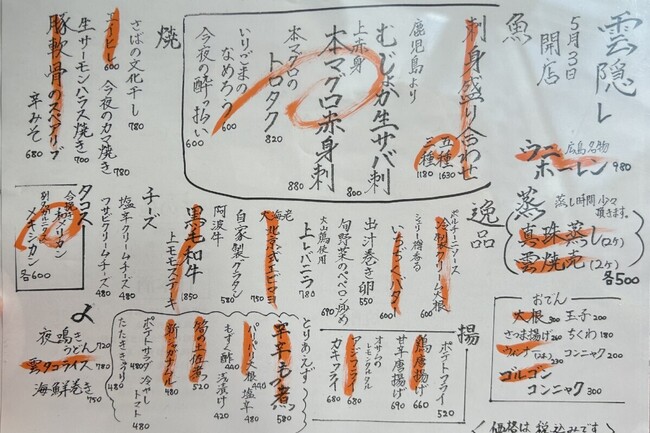 雲隠れ
5月3日
開店
魚
刺身盛り合わせ
五種 1630
三種 1180
鹿児島より
むじょか生サバ刺
800
上赤身
本マグロ赤身刺
880
本マグロの
トロタク
820
いりごまの
なめろう
600
今夜の酔っ払い
600
焼
さばの文化干し
780
今夜のカマ焼き
780
エイヒレ
600
生サーモンハラス焼き
700
豚軟骨のスペアリブ
辛みそ
680
広島名物
ウニホーレン 980
蒸
蒸し時間少々
頂きます。
真珠蒸し(2ケ)
雲焼売(2ケ)
各500
おでん
大根 300
玉子 200
さつま揚げ 260
ちくわ 180
ウィンナー
コンニャク 200
ゴルゴン
コンニャク 300
逸品
ポルチーニソース
冷製クリーム大根
シェリー樽香る
いちぢくバター
出汁巻き卵
550
旬野菜のペペロン炒め
690
大山鶏使用
上レバニラ
780
大海老
北京式エビマヨ
750
自家製グラタン
780
阿波牛
850
黒毛和牛
上モモステーキ
1850
チーズ
塩辛クリームチーズ
480
ワサビクリームチーズ
480
タコス
合挽肉の和メリカン
メキシカン
各600
〆
夜鳴きうどん 720
雲タコライス 780
海鮮巻き 750
揚
ポテトフライ
520
鶏唐揚げ
660
甘辛唐揚げ
690
オサムの
レモンタルタル
アジフライ
680
カキフライ
680
とりあえんず
牛すじ煮
580
パリパリ大根
440
塩辛
480
もずく酢
440
浅漬け
420
鮪の佐煮
520
新ワカナムル
480
ポテトサラダ
480
冷やしトマト
480
たたききうり
480
価格は税込みです